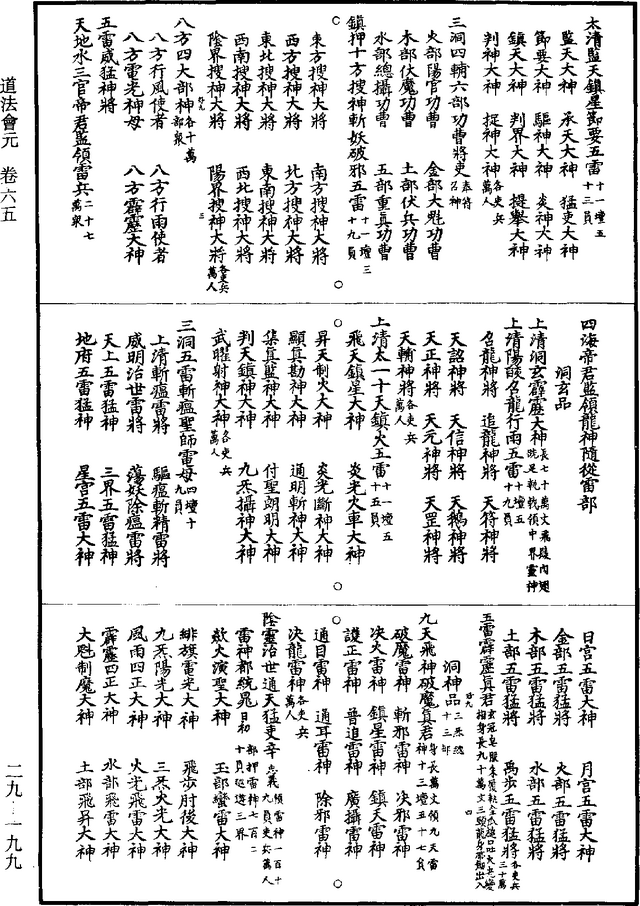 太清監天鎮星節要五雷十一壇五十三員
監天大神　承天大神　猛吏大神
節要大神　驅神大神　炎神大神
鎮天大神　判界大神　提舉大神
判神大神　捉神大神各吏兵萬人
三洞四輔六部功曹將吏奏符召神
火部陽官功曹　金部大魁功曹
木部伏魔功曹　土部伏兵功曹
水部總攝功曹　五部重真功曹
鎮押十方搜神斬妖破邪五雷十一壇三十九員
東方搜神大將　南方搜神大將
西方搜神大將　北方搜神大將
東北搜神大將　東南搜神大將
西南搜神大將　西北搜神大將
陰界搜神大將　陽界搜神大將各吏兵萬人
八方四大部神各十萬部衆
八方行風使者　八方行雨使者
八方電光神母　八方霹靂大神
五雷威猛神將
天地水三官帝君監領雷兵二十七萬衆
四海帝君監領龍神隨從雷部
洞玄品
上清洞玄霹靂大神長七十萬丈飛段內翅跣足執戟領中界靈神
上清陽燄召龍行雨五雷十壇五十九員
召龍神將　追龍神將　天符神將
天詔神將　天信神將　天鵝神將
天正神將　天元神將　天罡神將
天輔神將各吏兵萬人
上清太一十天鎮火五雷十一壇五十五員
飛天鎮星大神　炎光火車大神
昇天制火大神　炎光斷神大神
顯真勘神大神　通明斬神大神
集真監神大神　付聖朗明大神
判天鎮神大神　九炁攝神大神
武曜射神大神各吏兵萬人
三洞五雷斬瘟聖師雷母四壇十九員
上清斬瘟雷將　驅瘟斬精雷將
威明治世雷將　蕩妖除瘟雷將
天上五雷猛神　三界五雷猛神
地府五雷猛神　星宮五雷大神
日宮五雷大神　月宮五雷大神
金部五雷猛將　火部五雷猛將
木部五雷猛將　水部五雷猛將
土部五雷猛將　禹步五雷猛將各吏兵三十萬
五雷霹靂真君
洞神品三炁總十三部
九天飛神破魔真君身長萬丈領九天雷神十三壇五十七員
破魔雷神　斬邪雷神　決邪雷神
決火雷神　鎮星雷神　鎮天雷神
護正雷神　普追雷神　廣攝雷神
通目雷神　通耳雷神　除邪雷神
決龍雷神各吏兵萬人
陰靈治世通天猛吏辛忠義領雷神一百十九員吏兵萬人
雷神都統鬼日初部押雷神七百二十員巡遊三界
歘火演聖大神　玉部蠻雷大神
緋旗雷光大神　飛步肘後大神
九炁陽光大神　三炁火光大神
風雨四正大神　火光飛雷大神
霹靂四正大神　水部飛雷大神
大魁制魔大神　土部飛昇大神
道法會元　卷六五
二九—一九九